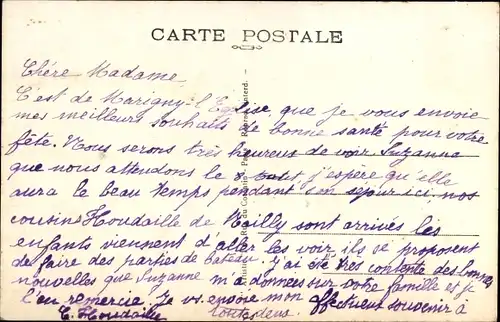 CARTE POSTALE
Chère Madame
C'est de Marigny-l'Eglise que je vous envoie
mes meilleurs souhaits de bonne santé pour votre
fête. Nous serons très heureux de voir Suzanne
que nous attendons le 8 j'espère qu'elle
aura le beau temps pendant son séjour ici, nos
cousins Houdaille de Mailly sont arrivés les
enfants viennent d'aller les voir ils se proposent
de faire des parties de bateau. j'ai été très contente des bonnes
nouvelles que Suzanne m'a données sur votre famille et je
l'en remercie. Je vs envoie mon affectueux souvenir à
E. Houdaille toutes deux.